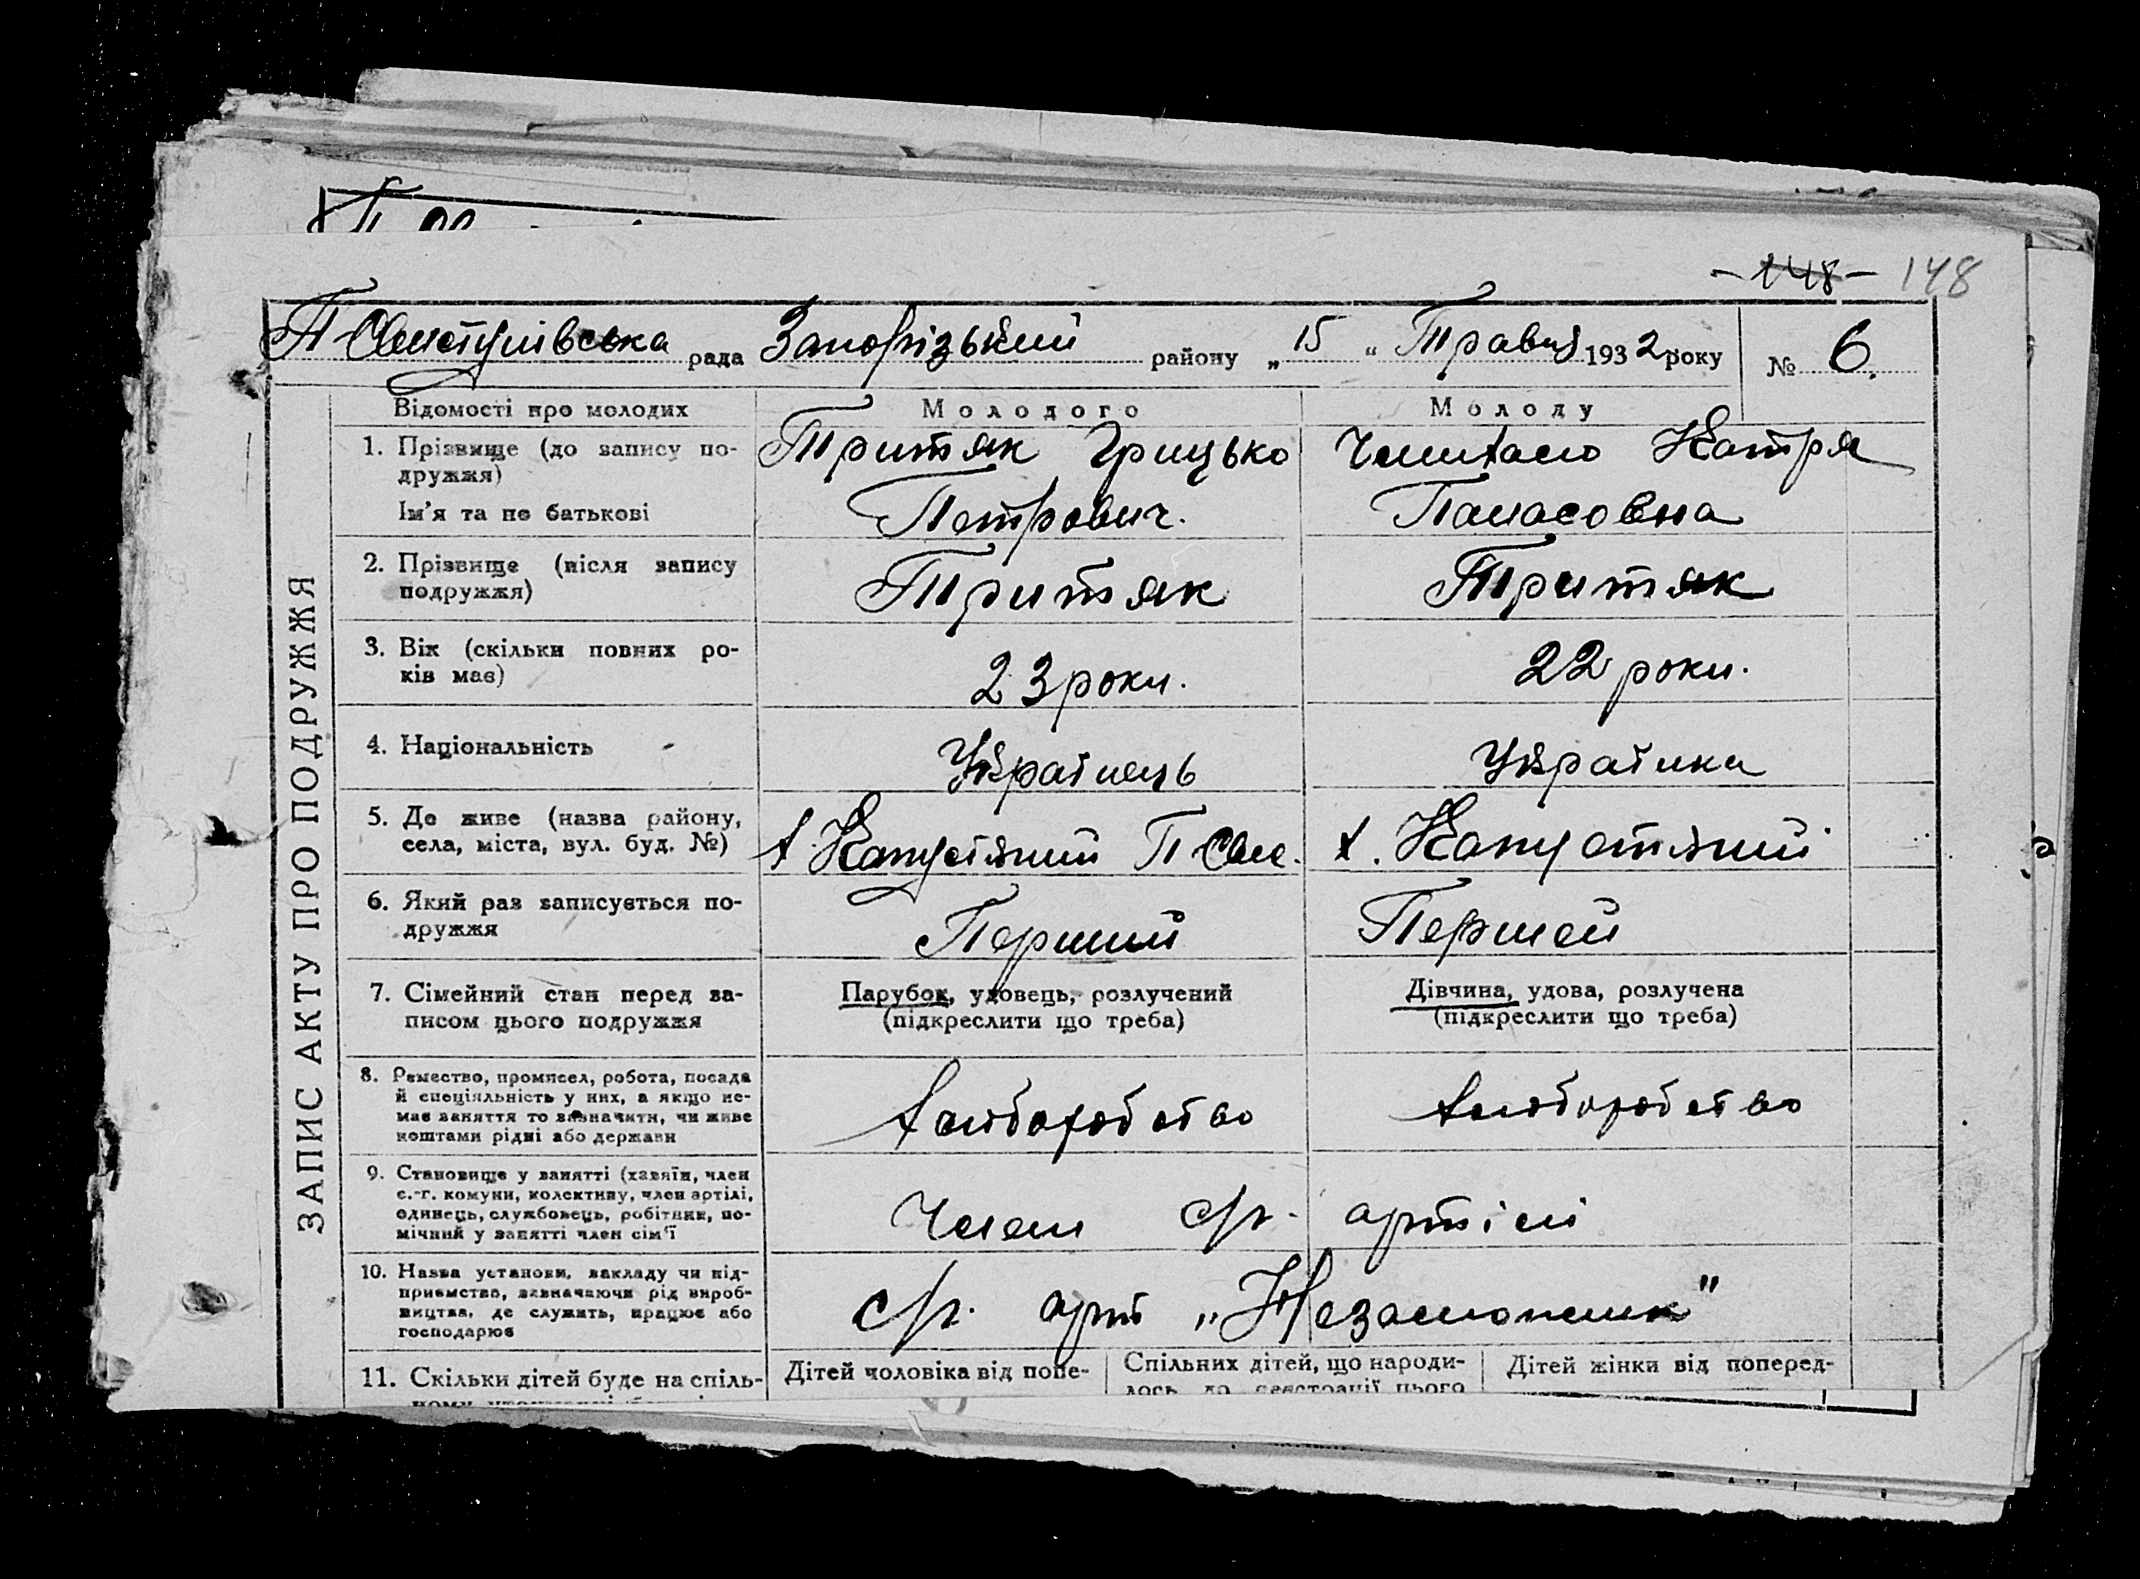 - 148 - 148
рада Запорізький району „ 15 “ Травня 1932 року № 6.
ЗАПИС АКТУ ПРО ПОДРУЖЖЯ
Відомості про молодих
Молодого
Молоду
1. Прізвище (до запису по-
дружжя)
Ім'я та по батькові
Притяк Грицько
Петрович.
Катря
Панасовна
2. Прізвище (після запису
подружжя)
Притяк
Притяк
3. Вік (скільки повних ро-
ків має)
23 роки.
22 роки.
4. Національність
Українець
Українка
5. Де живе (назва району,
села, міста, вул. буд. №)
х. Капустяний П
х. Капустяний
6. Який раз записується по-
дружжя
Перший
Першей
7. Сімейний стан перед за-
писом цього подружжя
Парубок, удовець, розлучений
(підкреслити що треба)
Дівчина, удова, розлучена
(підкреслити що треба)
8. Ремество, промисел, робота, посада
й спеціяльність у них, а якщо не-
має заняття то зазначити, чи живе
коштами рідні або держави
хліборобство
хліборобство
9. Становище у занятті (хазяїн, член
с.-г. комуни, колективу, член артілі,
одинець, службовець, робітник, по-
мічний у занятті член сім'ї
Член с/г. артілі
10. Назва установи, закладу чи під-
приємства, зазначаючи рід вироб-
ництва, де служить, працює або
господарює
с/г. арт „Незаможник"
11. Скільки дітей буде на спіль-
Дітей чоловіка від попе-
Спільних дітей, що народи-
лось до реєстрації цього
Дітей жінки від поперед-